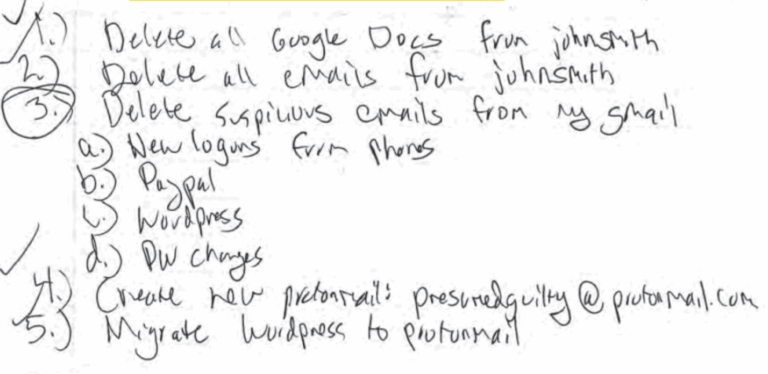 1.) Delete all Google Docs from johnsmith
2.) Delete all emails from johnsmith
3.) Delete suspicious emails from my gmail
a.) New logons from phones
b.) Paypal
c.) Wordpress
d.) PW changes
4.) Create new protonmail: presumedguilty@protonmail.com
5.) Migrate wordpress to protonmail